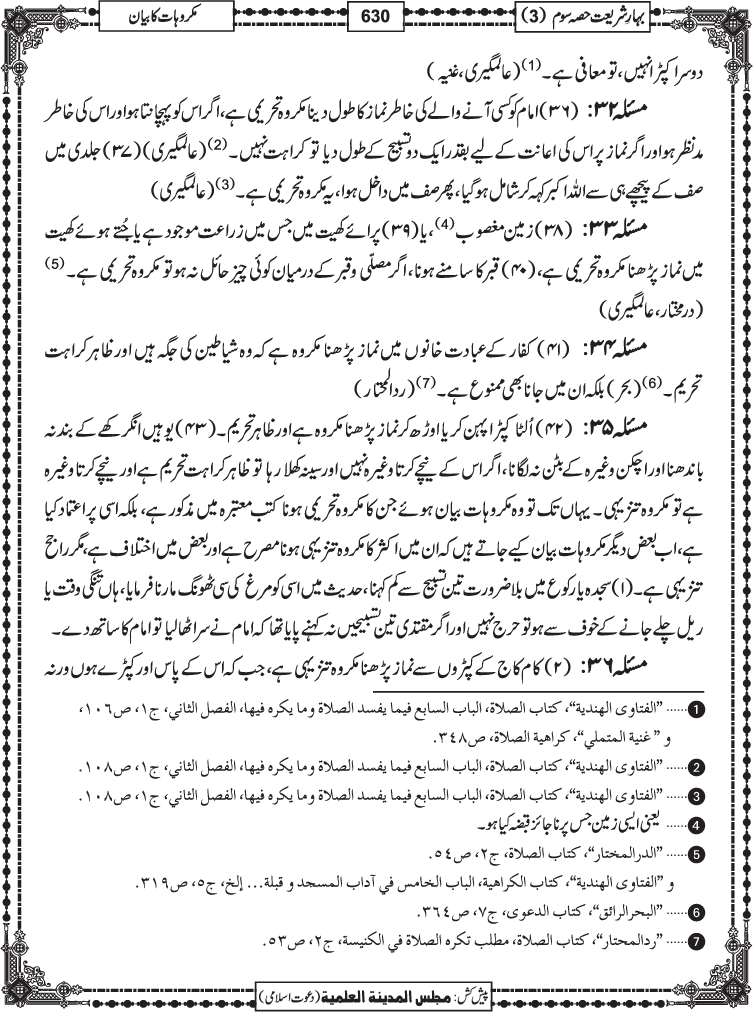 بہارِ شریعت حصہ سوم (3)
630
مکروہات کا بیان
دوسرا کپڑا نہیں، تو معافی ہے۔(1) (عالمگیری، غنیہ)
مسئلہ ۳۲: (۳۶) امام کو کسی آنے والے کی خاطر نماز کا طول دینا مکروہ تحریمی ہے، اگر اس کو پہچانتا ہو اور اس کی خاطر
مدنظر ہو اور اگر نماز پر اس کی اعانت کے لیے بقدر ایک دو تسبیح کے طول دیا تو کراہت نہیں۔(2) (عالمگیری) (۳۷) جلدی میں
صف کے پیچھے ہی سے اللہ اکبر کہہ کر شامل ہوگیا، پھر صف میں داخل ہوا، یہ مکروہ تحریمی ہے۔(3) (عالمگیری)
مسئلہ ۳۳: (۳۸) زمین مغصوب(4)، یا (۳۹) پرائے کھیت میں جس میں زراعت موجود ہے یا جُتے ہوئے کھیت
میں نماز پڑھنا مکروہ تحریمی ہے، (۴۰) قبر کا سامنے ہونا، اگر مصلّی و قبر کے درمیان کوئی چیز حائل نہ ہو تو مکروہ تحریمی ہے۔(5)
(درمختار، عالمگیری)
مسئلہ ۳۴: (۴۱) کفار کے عبادت خانوں میں نماز پڑھنا مکروہ ہے کہ وہ شیاطین کی جگہ ہیں اور ظاہر کراہت
تحریم۔(6) (بحر) بلکہ ان میں جانا بھی ممنوع ہے۔(7) (ردالمحتار)
مسئلہ ۳۵: (۴۲) اُلٹا کپڑا پہن کر یا اوڑھ کر نماز پڑھنا مکروہ ہے اور ظاہر تحریم۔ (۴۳) یوہیں انگرکھے کے بند نہ
باندھنا اور اچکن وغیرہ کے بٹن نہ لگانا، اگر اس کے نیچے کرتا وغیرہ نہیں اور سینہ کھلا رہا تو ظاہر کراہت تحریم ہے اور نیچے کرتا وغیرہ
ہے تو مکروہ تنزیہی۔ یہاں تک تو وہ مکروہات بیان ہوئے جن کا مکروہ تحریمی ہونا کتب معتبرہ میں مذکور ہے، بلکہ اسی پر اعتماد کیا
ہے، اب بعض دیگر مکروہات بیان کیے جاتے ہیں کہ ان میں اکثر کا مکروہ تنزیہی ہونا مصرح ہے اور بعض میں اختلاف ہے، مگر راجح
تنزیہی ہے۔ (۱) سجدہ یا رکوع میں بلا ضرورت تین تسبیح سے کم کہنا، حدیث میں اسی کو مرغ کی سی ٹھونگ مارنا فرمایا، ہاں تنگی وقت یا
ریل چلے جانے کے خوف سے ہو تو حرج نہیں اور اگر مقتدی تین تسبیحیں نہ کہنے پایا تھا کہ امام نے سر اٹھا لیا تو امام کا ساتھ دے۔
مسئلہ ۳۶: (۲) کام کاج کے کپڑوں سے نماز پڑھنا مکروہ تنزیہی ہے، جب کہ اس کے پاس اور کپڑے ہوں ورنہ
1...... "الفتاوی الهندية"، كتاب الصلاة، الباب السابع فيما يفسد الصلاة وما يكره فيها، الفصل الثاني، ج١، ص١٠٦،
و "غنية المتملي"، كراهية الصلاة، ص٣٤٨.
2...... "الفتاوی الهندية"، كتاب الصلاة، الباب السابع فيما يفسد الصلاة وما يكره فيها، الفصل الثاني، ج١، ص١٠٨.
3...... "الفتاوی الهندية"، كتاب الصلاة، الباب السابع فيما يفسد الصلاة وما يكره فيها، الفصل الثاني، ج١، ص١٠٨.
4...... یعنی ایسی زمین جس پر ناجائز قبضہ کیا ہو۔
5...... "الدرالمختار"، كتاب الصلاة، ج٢، ص٥٤.
و "الفتاوی الهندية"، كتاب الكراهية، الباب الخامس في آداب المسجد و قبلة... إلخ، ج٥، ص٣١٩.
6...... "البحرالرائق"، كتاب الدعوی، ج٧، ص٣٦٤.
7...... "ردالمحتار"، كتاب الصلاة، مطلب تكره الصلاة في الكنيسة، ج٢، ص٥٣.
پیش کش: مجلس المدينة العلمية (دعوت اسلامی)